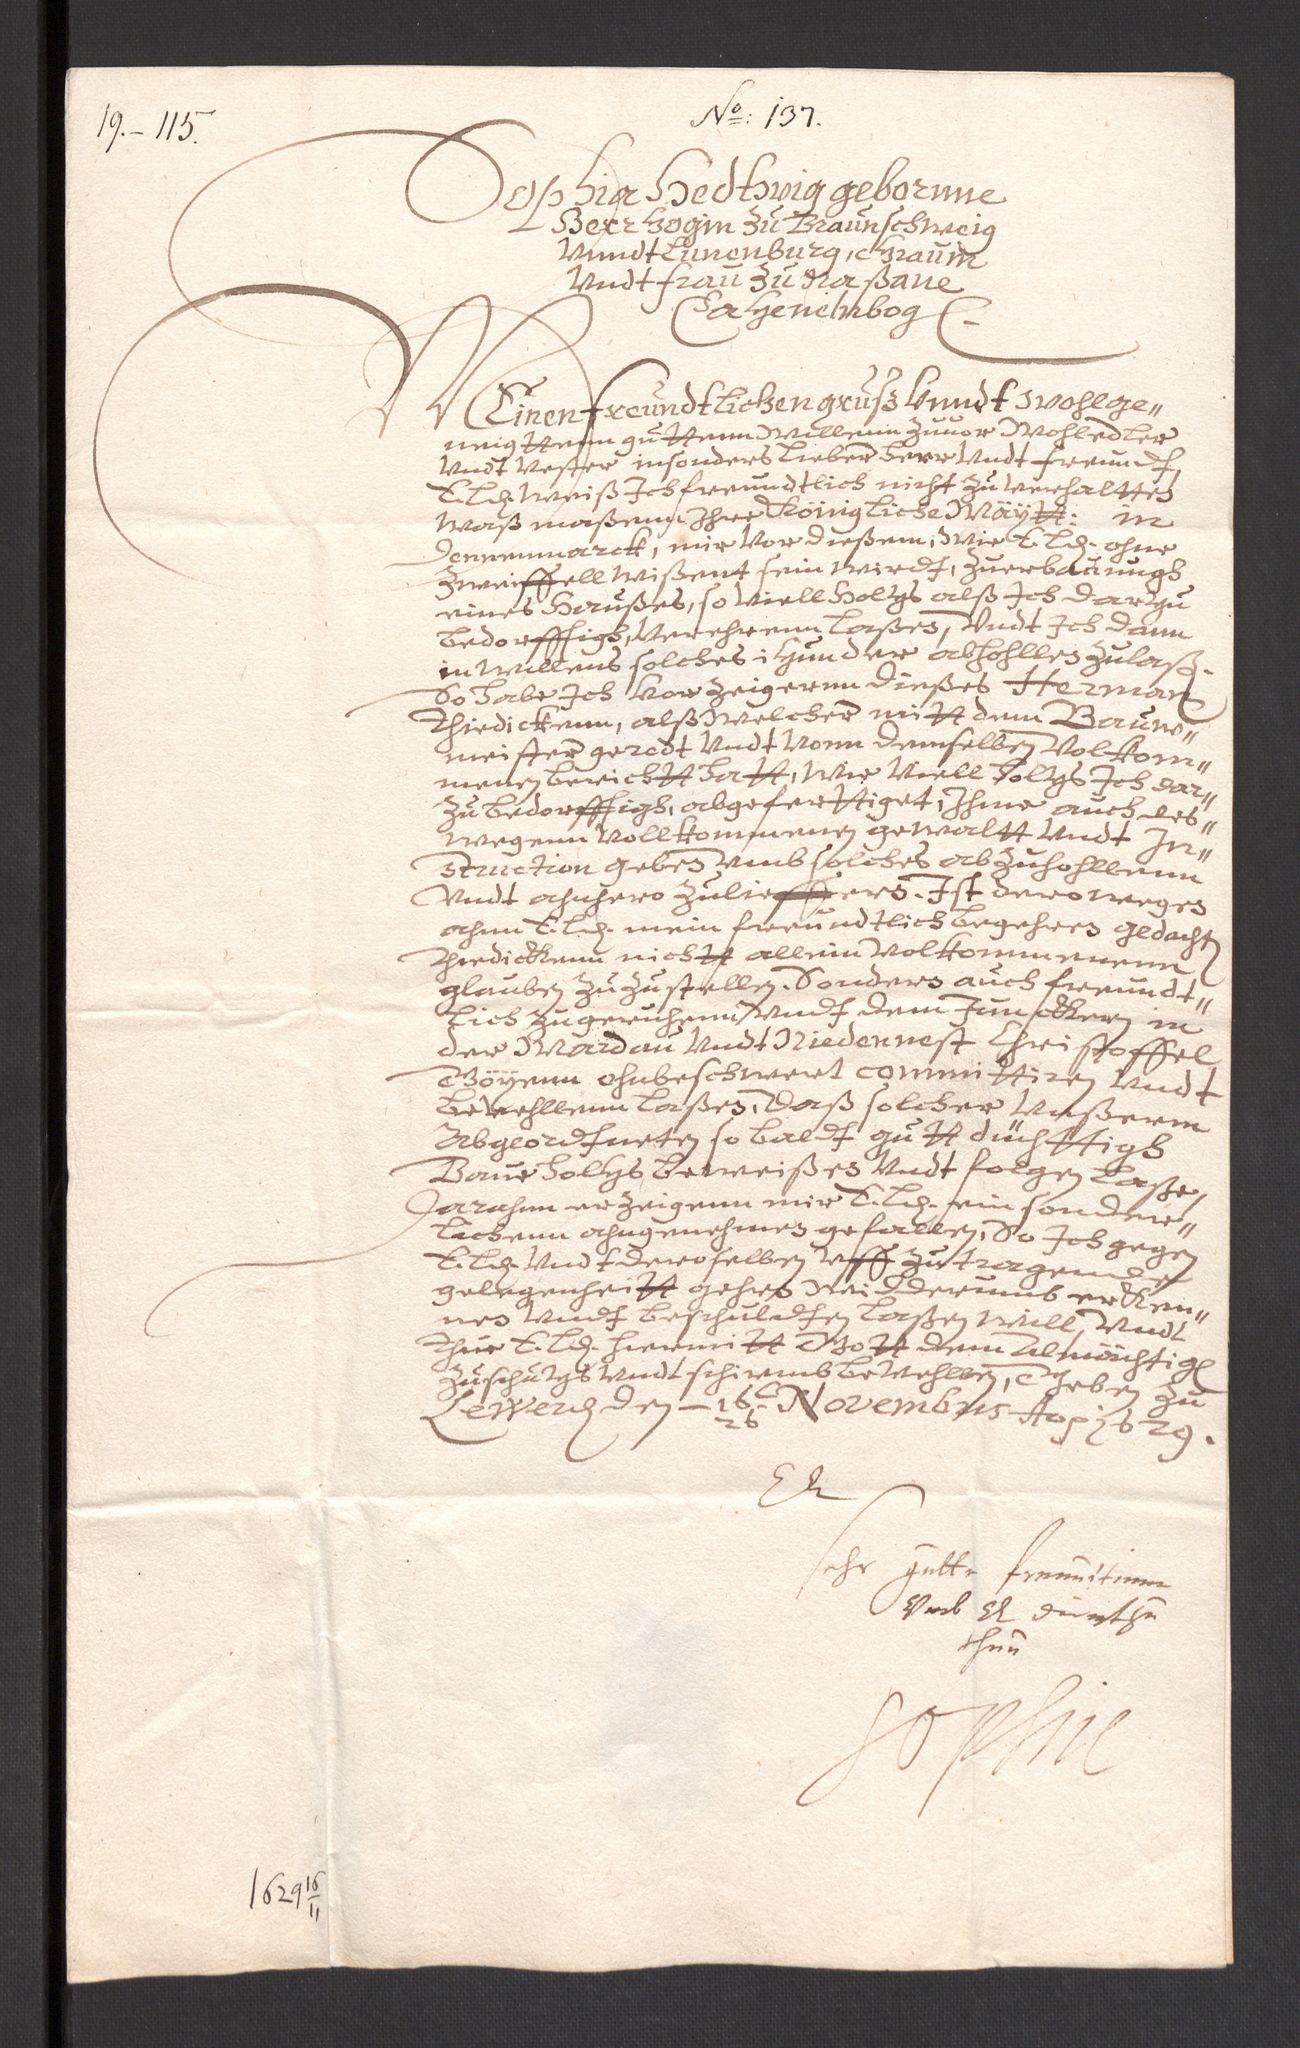 19.- 115.
No: 137.
Sophia Hedtwig geborne
Hertzogin zu Braunschweig
Unndt Lunenburg, Graum
Undt frau zu Naßaue
Catzenelnbog
Meinen freundtlichen gruß Vnndt wohlge„
neigttenn guttenn Willenn zuuor Wohledler
Undt Vester insonders lieber Herr Undt freundt,
E. Ld. Weiß Ich freundtlich nicht zu verhaltten
Waß maßenn Ihre Königliche Mäytt: in
Dennenmarck, mir Vor dießem, Wie E. Ld. ohne
Zweiffell Wißent sein wirdt, Zuerbauungh
eines Haußes, so Viell Holtz alß Ich dartzu
bedorffigh, Verehrenn laßen, Undt Ich dann
in Willens solches itzunder abhohllen zulaß.
So habe Ich Vorzeigernn dießes Herman
Thiedickenn, alß Welcher mitt dem Bauwe„
meister geredt Undt Vonn demselben Volkom„
menen bericht hatt, Wie Viell Holtz Ich dar„
zu bedorffigh, abgeferttiget, Ihme auch des„
Wegenn Vollkommenen gewaltt Undt In„
struction geben Umb solches abzuhohllenn
Undt ahnhero zulieffern. Ist deroweges
ahnn E. Ld. mein freundtlich begehren gedacht
Thiedickenn nicht allein Volkommenenn
glauben zuzustellen. Sondern auch freundt„
lich zugeruhenn Undt dem Junckern in
der Mardau Undt Niedennest Christoffel
Göyenn ohnbeschwert committiren Undt
beVehllenn laßen, daß solcher Unßerm
Abgeordtneten so baldt gutt düchttigh
Bauwholtz beweißen Undt folgen laße,
Darahnn erzeigenn mir E. Ld. ein sonder„
lichenn ahngenehmen gefallen, So Ich gegen
E. Ld. Undt deroselben Uff zutragende
gelegenheitt gehrn Widderumb erken„
nen Undt beschuldten laßen Will, Undt
Thue E. Ld. hiermitt Gott dem Almächtig
Zuschutz Undt schirmb beVehllen, Geben zu
Lewerd den 16/26 Novembris Ao 1629.
EL
sehr gutte freundinne
Vnd EL dienst zu
thun
Sophie
1629 16/11